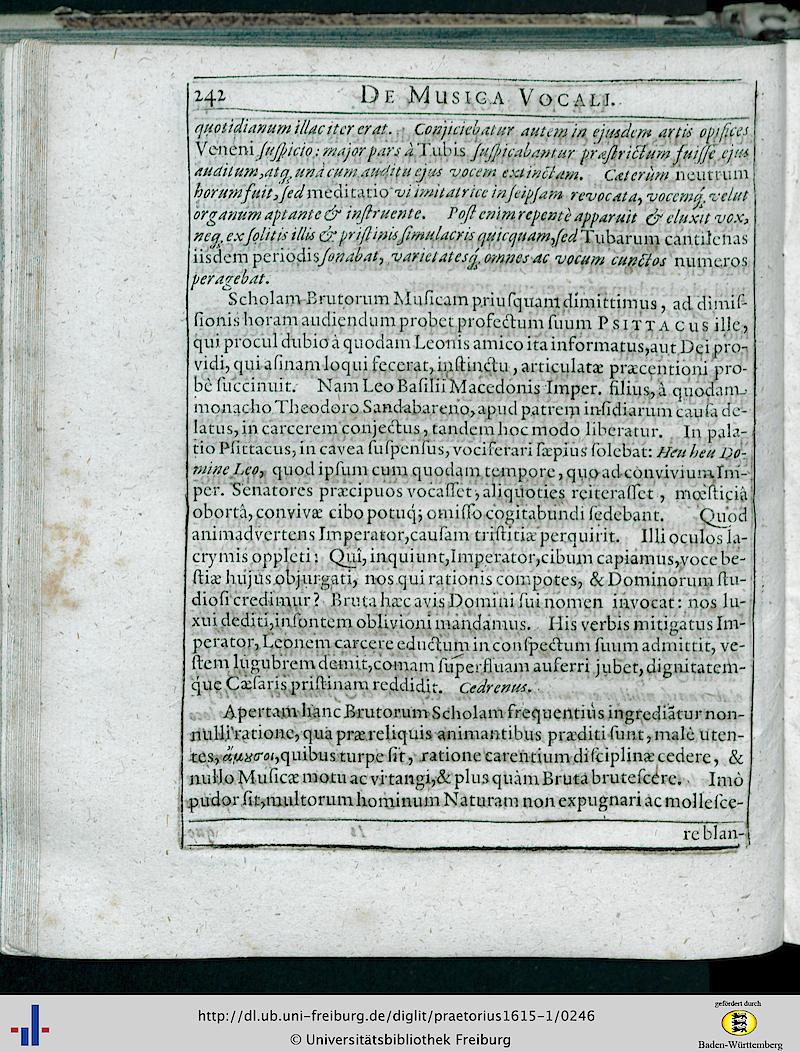 242 DE MUSICA VOCALI.
quotidianum illac iter erat. Conjiciebatur autem in ejusdem artis opifices
Veneni ſuſpicio: major pars à Tubis ſuſpicabantur præſtrictum fuiſſe ejus
auditum, atq; unà cum auditu ejus vocem extinctam. Cæterùm neutrum
horum fuit, ſed meditatio vi imitatrice in ſeipſam revocata, vocemq; velut
organum aptante & inſtruente. Poſt enim repentè apparuit & eluxit vox,
neq; ex ſolitis illis & priſtinis ſimulacris quicquam, ſed Tubarum cantilenas
iisdem periodis ſonabat, varietatesq; omnes ac vocum cunctos numeros
peragebat.
Scholam Brutorum Muſicam priuſquam dimittimus, ad dimiſ-
ſionis horam audiendum probet profectum ſuum PSITTACUS ille,
qui procul dubio à quodam Leonis amico ita informatus, aut Dei pro-
vidi, qui aſinam loqui fecerat, inſtinctu, articulatæ præcentioni pro-
bè ſuccinuit. Nam Leo Baſilii Macedonis Imper. filius, à quodam
monacho Theodoro Sandabareno, apud patrem inſidiarum cauſa de-
latus, in carcerem conjectus, tandem hoc modo liberatur. In pala-
tio Pſittacus, in cavea ſuſpenſus, vociferari ſæpius ſolebat: Heu heu Do-
mine Leo, quod ipſum cum quodam tempore, quo ad convivium Im-
per. Senatores præcipuos vocaſſet, aliquoties reiteraſſet, mœſticiâ
obortâ, convivæ cibo potuq; omiſſo cogitabundi ſedebant. Quod
animadvertens Imperator, cauſam triſtitiæ perquirit. Illi oculos la-
crymis oppleti: Quî, inquiunt, Imperator, cibum capiamus, voce be-
ſtiæ hujus objurgati, nos qui rationis compotes, & Dominorum ſtu-
dioſi credimur? Bruta hæc avis Domini ſui nomen invocat: nos lu-
xui dediti, inſontem oblivioni mandamus. His verbis mitigatus Im-
perator, Leonem carcere eductum in conſpectum ſuum admittit, ve-
ſtem lugubrem demit, comam ſuperfluam auferri jubet, dignitatem-
que Cæſaris priſtinam reddidit. Cedrenus.
Apertam hanc Brutorum Scholam frequentiùs ingrediãtur non-
nulli ratione, quâ præ reliquis animantibus præditi ſunt, malè uten-
tes, ἄμȣσοι, quibus turpe ſit, ratione carentium diſciplinæ cedere, &
nullo Muſicæ motu ac vi tangi, & plus quàm Bruta bruteſcere. Imò
pudor ſit, multorum hominum Naturam non expugnari ac molleſce-
re blan-
http://dl.ub.uni-freiburg.de/diglit/praetorius1615-1/0246
© Universitätsbibliothek Freiburg
gefördert durch
Baden-Württemberg